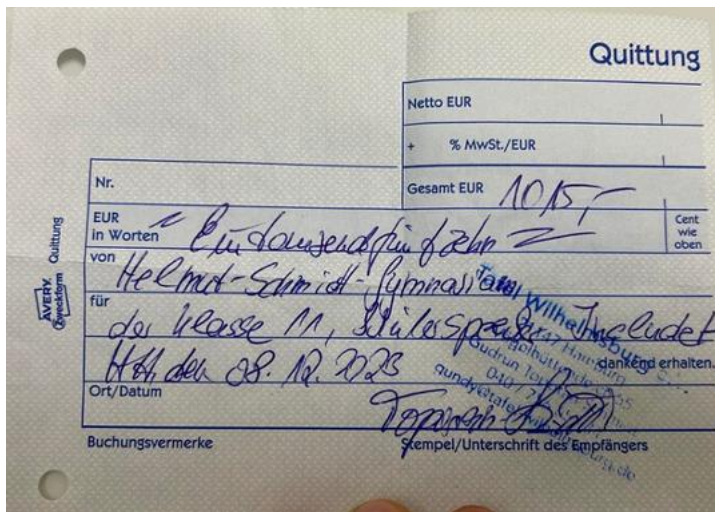 Quittung
Netto EUR
+ % MwSt./EUR
Nr.
Gesamt EUR 1015,-
EUR in Worten Eintausendfünfzehn
Cent wie oben
von Helmut-Schmidt-Gymnasium
für der Klasse 11, Schülerspende
HH, den 08.12.2023
dankend erhalten.
Ort/Datum
Buchungsvermerke
Stempel/Unterschrift des Empfängers
Tafel Wilhelmsburg
Gudrun
040 /
AVERY Zweckform Quittung